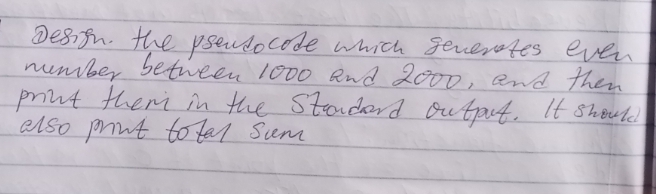 Design. the pseudocode which generates even
number between 1000 and 2000, and then
print them in the Standard output. It should
also print total sum